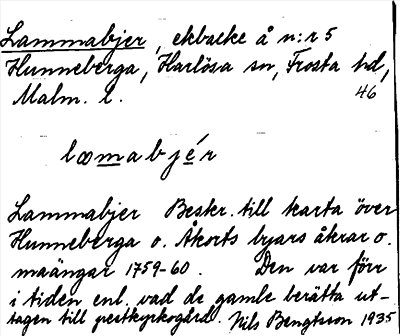 Lammabjer, ekbacke å n:r 5
Hunneberga, Harlösa sn, Frosta hd,
Malm. l. 46
lamabjér
Lammabjer Beskr. till karta över
Hunneberga o. Åkorts byars åkrar o.
maängar 1759-60. Den var förr
i tiden enl. vad de gamle berätta ut-
tagen till pestkyrkogård. Nils Bengtsson 1935